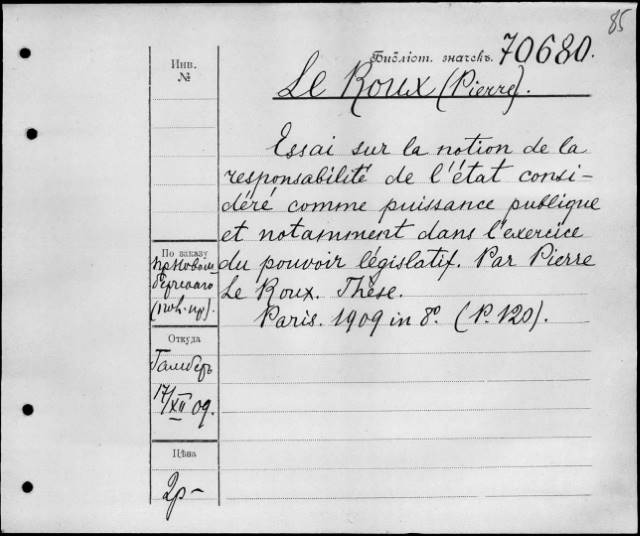 85
Библіот. значекъ. 70680.
Инв.
№
Le Roux (Pierre).
Essai sur la notion de la
responsabilité de l'état consi-
déré comme puissance publique
et notamment dans l'exercice
du pouvoir législatif. Par Pierre
Le Roux. Thèse.
Paris. 1909 in 8º. (P. 120).
По заказу
Откуда
17/XII 09.
Цѣна
2р-